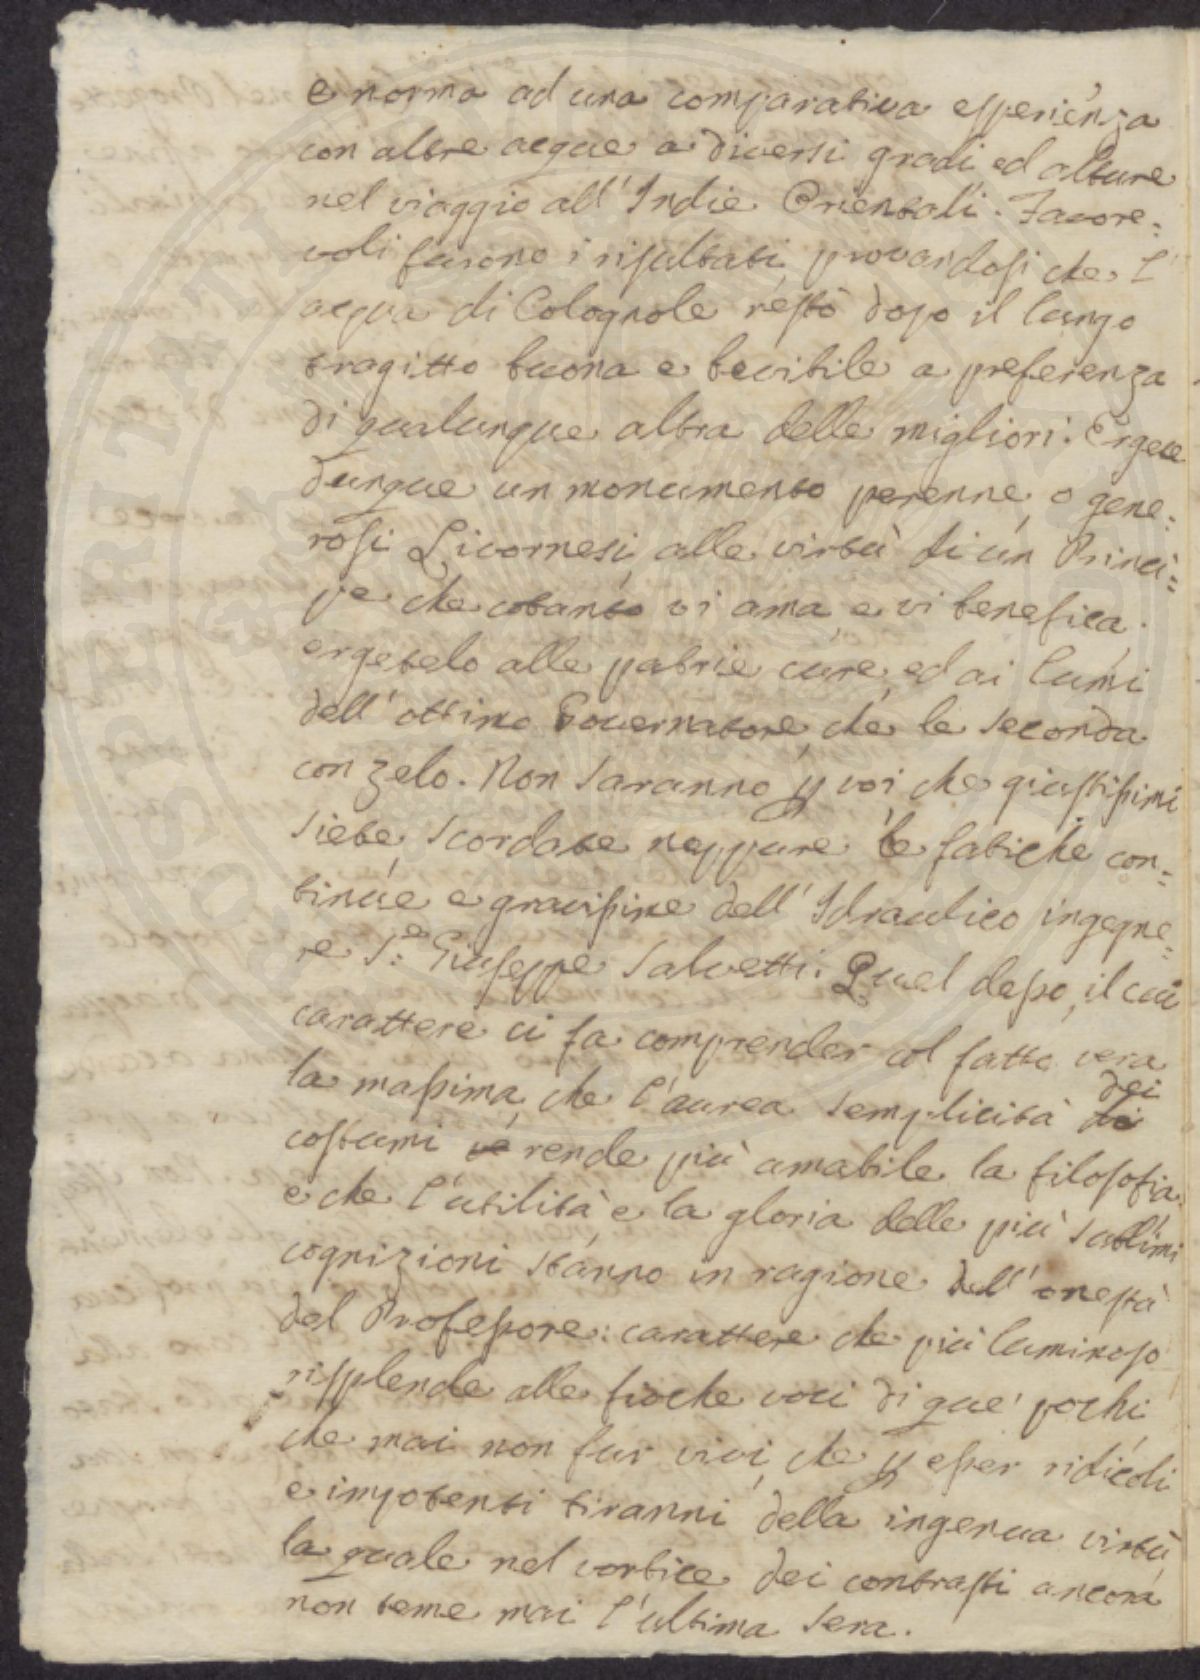 e norma ad una comparativa esperienza
con altre acque a diversi gradi ed alture
nel viaggio all' Indie Orientali. Favore=
voli furono i risultati, provandosi che l'
acqua di Colognole restò dopo il lungo
tragitto buona e bevibile a preferenza
di qualunque altra delle migliori. Ergete
dunque un monumento perenne, o gene=
rosi Livornesi, alle virtù di un Princi=
pe che cotanto vi ama, e vi benefica.
ergetelo alle patrie cure, ed ai lumi
dell' ottimo Governatore, che le seconda
con zelo. Non saranno p voi che giustissimi
siete, scordate neppure le fatiche con=
tinue e gravissime dell' Idraulico ingegne=
re S.e Giuseppe Salvetti. Quel desso, il cui
carattere ci fa comprender col fatto vera
la massima, che l'aurea semplicità dei
costumi rende più amabile la filosofia,
e che l'utilità e la gloria delle più sublimi
cognizioni stanno in ragione dell' onestà
del Professore: carattere che più luminoso
risplende alle fioche voci di que' pochi,
che mai non fur vivi, che p esser ridicoli
e impotenti tiranni della ingenua virtù
la quale nel vortice dei contrasti ancora
non teme mai l'ultima sera.